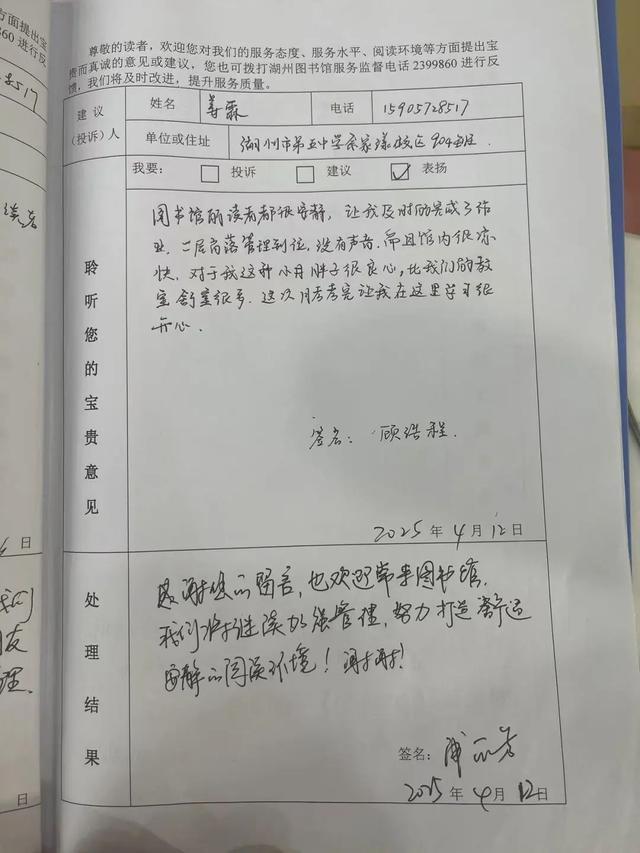 尊敬的读者，欢迎您对我们的服务态度、服务水平、阅读环境等方面提出宝
贵而真诚的意见或建议，您也可拨打湖州图书馆服务监督电话 2399860 进行反
馈，我们将及时改进，提升服务质量。
建议（投诉）人
姓名 姜霖 电话 15905728517
单位或住址 湖州市第五中学余家漾校区904班
我要： 投诉 建议 表扬
聆听您的宝贵意见
图书馆的读者都很安静，让我及时的完成了作
业，二层角落管理到位，没有声音，而且馆内很凉
快，对于我这种小胖子很良心，比我们的教
室舒室很多，这次月考考完让我在这里学习很
开心．
签名： 顾浩程．
2025 年 4 月 12 日
处理结果
感谢您的留言，也欢迎常来图书馆．
我们将继续加强管理，努力打造舒适
安静的阅读环境！谢谢！
签名：
2025 年 4 月 12 日
方面提出宝
860 进行反
8517
日
我们
友
理．
日